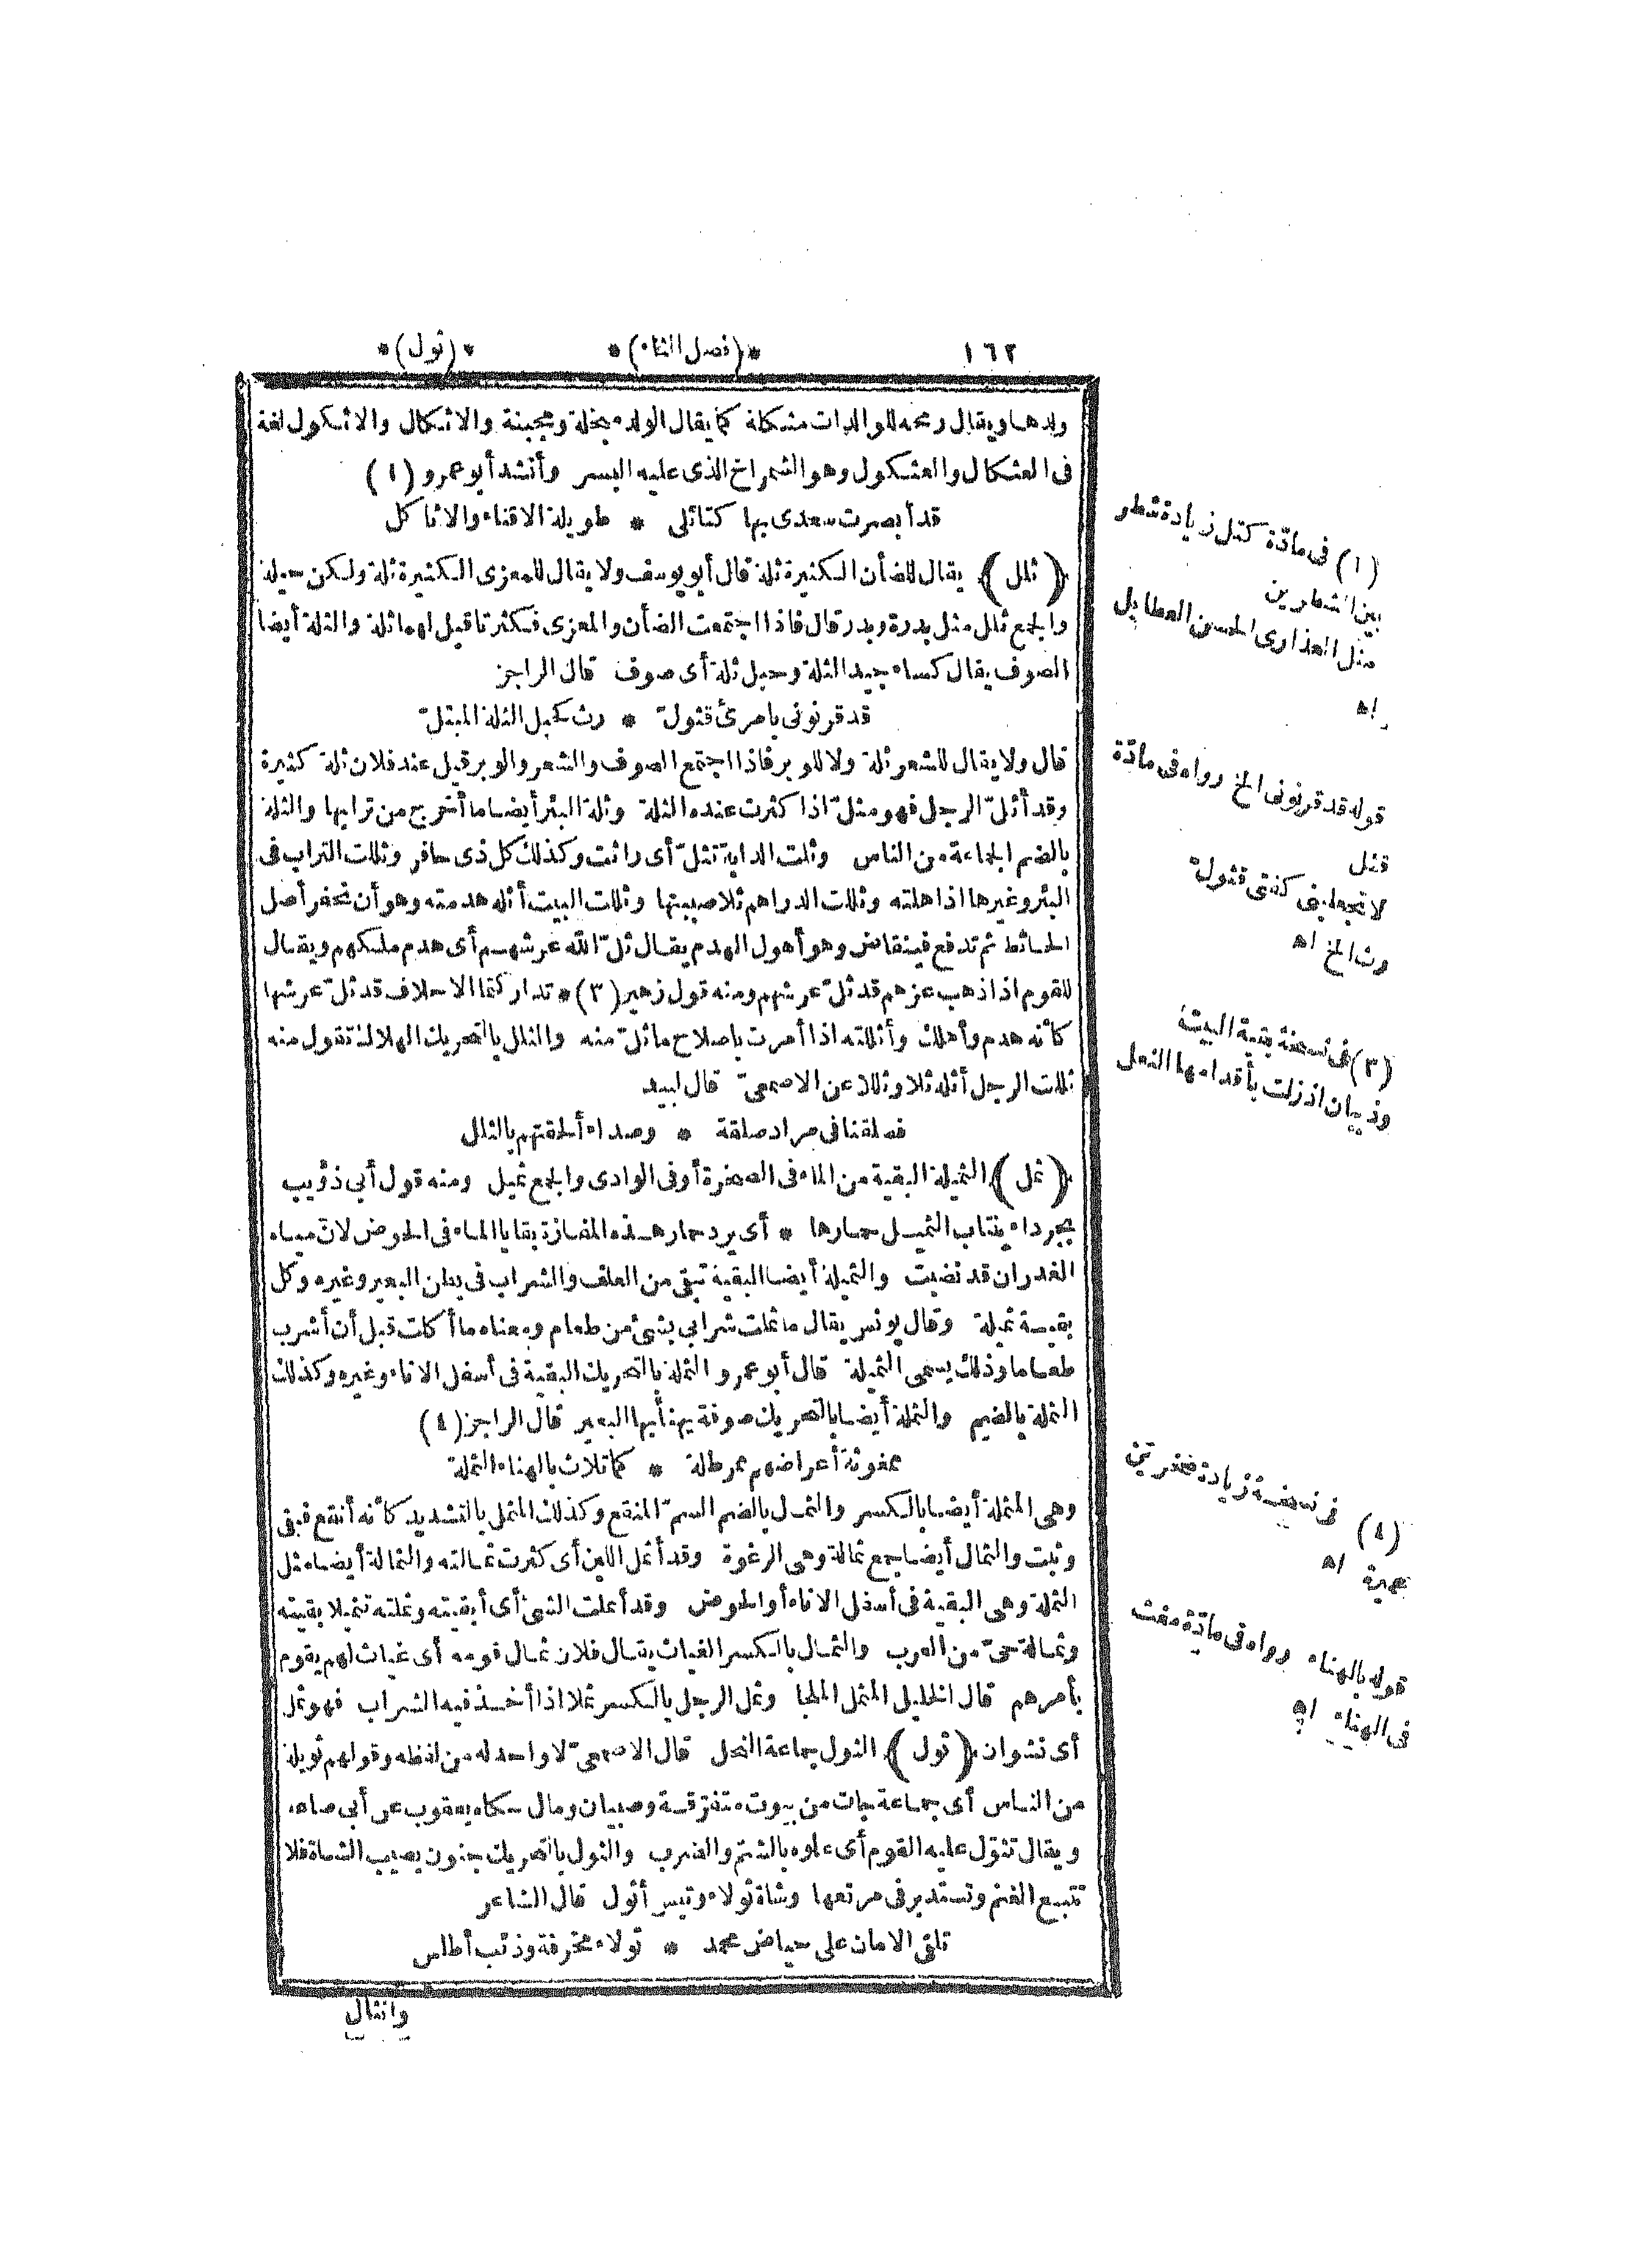 ١٦٢ *(فصل الثاء)* *(ثول)*
ولدها ويقال رمحه للوالدات مثكلة كما يقال الولد مبخلة ومجبنة والاثكال والاثكول لغة
فى العثكال والعثكول وهو الشمراخ الذى عليه البسر وأنشد أبو عمرو (١)
قد أبصرت سعدى بها كتائلى * طويلة الاقناء والاثاكل
﴿ثلل﴾ يقال للضأن الكثيرة ثلة قال أبو يوسف ولا يقال للمعزى الكثيرة ثلة ولكن حيلة
والجمع ثلل مثل بدرة وبدر قال فاذا اجتمعت الضأن والمعزى فكثرتا قيل لهما ثلة والثلة أيضا
الصوف يقال كساء جيد الثلة وحبل ثلة أى صوف قال الراجز
قد قرنونى بامرئ قثولّ * رث كحبل الثلة المبتلّ
قال ولا يقال للشعر ثلة ولا للوبر فاذا اجتمع الصوف والشعر والوبر قيل عند فلان ثلة كثيرة
وقد أثلّ الرجل فهو مثلّ اذا كثرت عنده الثلة وثلة البئر أيضا ما أخرج من ترابها والثلة
بالضم الجماعة من الناس وثلت الدابة تثلّ أى راثت وكذلك كل ذى حافر وثللت التراب فى
البئر وغيرها اذا هلته وثللت الدراهم ثلا صببتها وثللت البيت أثله هدمته وهو أن تحفر أصل
الحائط ثم تدفع فينقاض وهو أهول الهدم يقال ثلّ الله عرشهم أى هدم ملكهم ويقال
للقوم اذا ذهب عزهم قد ثلّ عرشهم ومنه قول زهير (٣) * تداركتما الاحلاف قد ثلّ عرشها
كأنه هدم وأهلك وأثللته اذا أمرت باصلاح ما ثلّ منه والثلل بالتحريك الهلاك تقول منه
ثللت الرجل أثله ثلا وثللا عن الاصمعىّ قال لبيد
فصلقنا فى مراد صلقة * وصداء ألحقتهم بالثلل
﴿ثمل﴾ الثميلة البقية من الماء فى الصخرة أو فى الوادى والجمع ثميل ومنه قول أبي ذؤيب
بجرداء ينتاب الثميل حمارها * أى يرد حمار هذه المفازة بقايا الماء فى الحوض لانّ مياه
الغدران قد نضبت والثميلة أيضا البقية تبقى من العلف والشراب فى بطن البعير وغيره وكل
بقية ثميلة وقال يونس يقال ما ثملت شرابي بشئ من طعام ومعناه ما أكلت قبل أن أشرب
طعاما وذلك يسمى الثميلة قال أبو عمرو الثملة بالتحريك البقية فى أسفل الاناء وغيره وكذلك
الثملة بالضم والثملة أيضا بالتحريك صوفة يهنأ بها البعير قال الراجز (٤)
ممغوثة أعراضهم ممرطلة * كما تلاث بالهناء الثملة
وهى المثملة أيضا بالكسر والثمال بالضم السمّ المنقع وكذلك المثمل بالتشديد كأنه أنقع فبقى
وثبت والثمال أيضا جمع ثمالة وهى الرغوة وقد أثمل اللبن أى كثرت ثمالته والثمالة أيضا مثل
الثملة وهى البقية فى أسفل الاناء أو الحوض وقد أثملت الشئ أى أبقيته وثملته تثميلا بقيته
وثمالة حىّ من العرب والثمال بالكسر الغياث يقال فلان ثمال قومه أى غياث لهم يقوم
بأمرهم قال الخليل المثمل الملجا وثمل الرجل بالكسر ثملا اذا أخذ فيه الشراب فهو ثمل
أى نشوان ﴿ثول﴾ الثول جماعة النحل قال الاصمعىّ لا واحد له من لفظه وقولهم ثويلة
من الناس أى جماعة جاءت من بيوت متفرّقة وصبيان ومال حكاه يعقوب عن أبى صاعد
ويقال تثوّل عليه القوم أى علوه بالشتم والضرب والثول بالتحريك جنون يصيب الشاة فلا
تتبع الغنم وتستدير فى مرتعها وشاة ثولاء وتيس أثول قال الشاعر
تلقى الامان على حياض محمد * ثولاء مخرفة وذئب أطلس
وانثال
(١) فى مادّة كتل زيادة شطر
بين الشطرين
مثل العذارى الحسن العطابل
اه
قوله قد قرنونى الخ رواه فى مادّة
قثل
لا تجعلينى كفتى قثولّ
رث الخ اه
(٣) فى نسخة بقية البيت
وذبيان اذ زلت بأقدامها النعل
(٤) فى نسخة زيادة صخر بن
عميرة اه
قوله بالهناء رواه فى مادّة مغث
فى الهناء اه